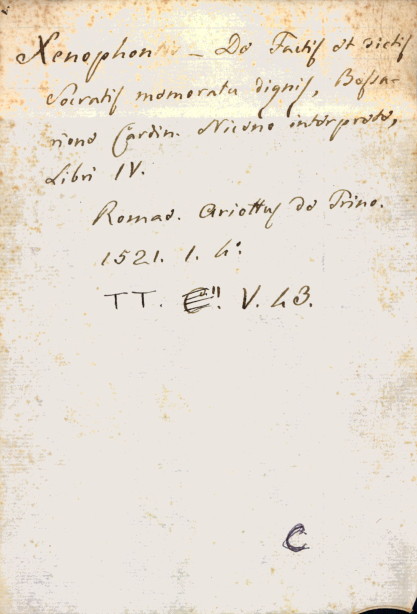 Xenophontis - De Factis et dictis
Socratis memoratu dignis, Bessa-
rione Cardin. Niceno interprete,
Libri IV.
Romae. Ariottus de Trino.
1521. 1. 4°
TT. V. 43.
C